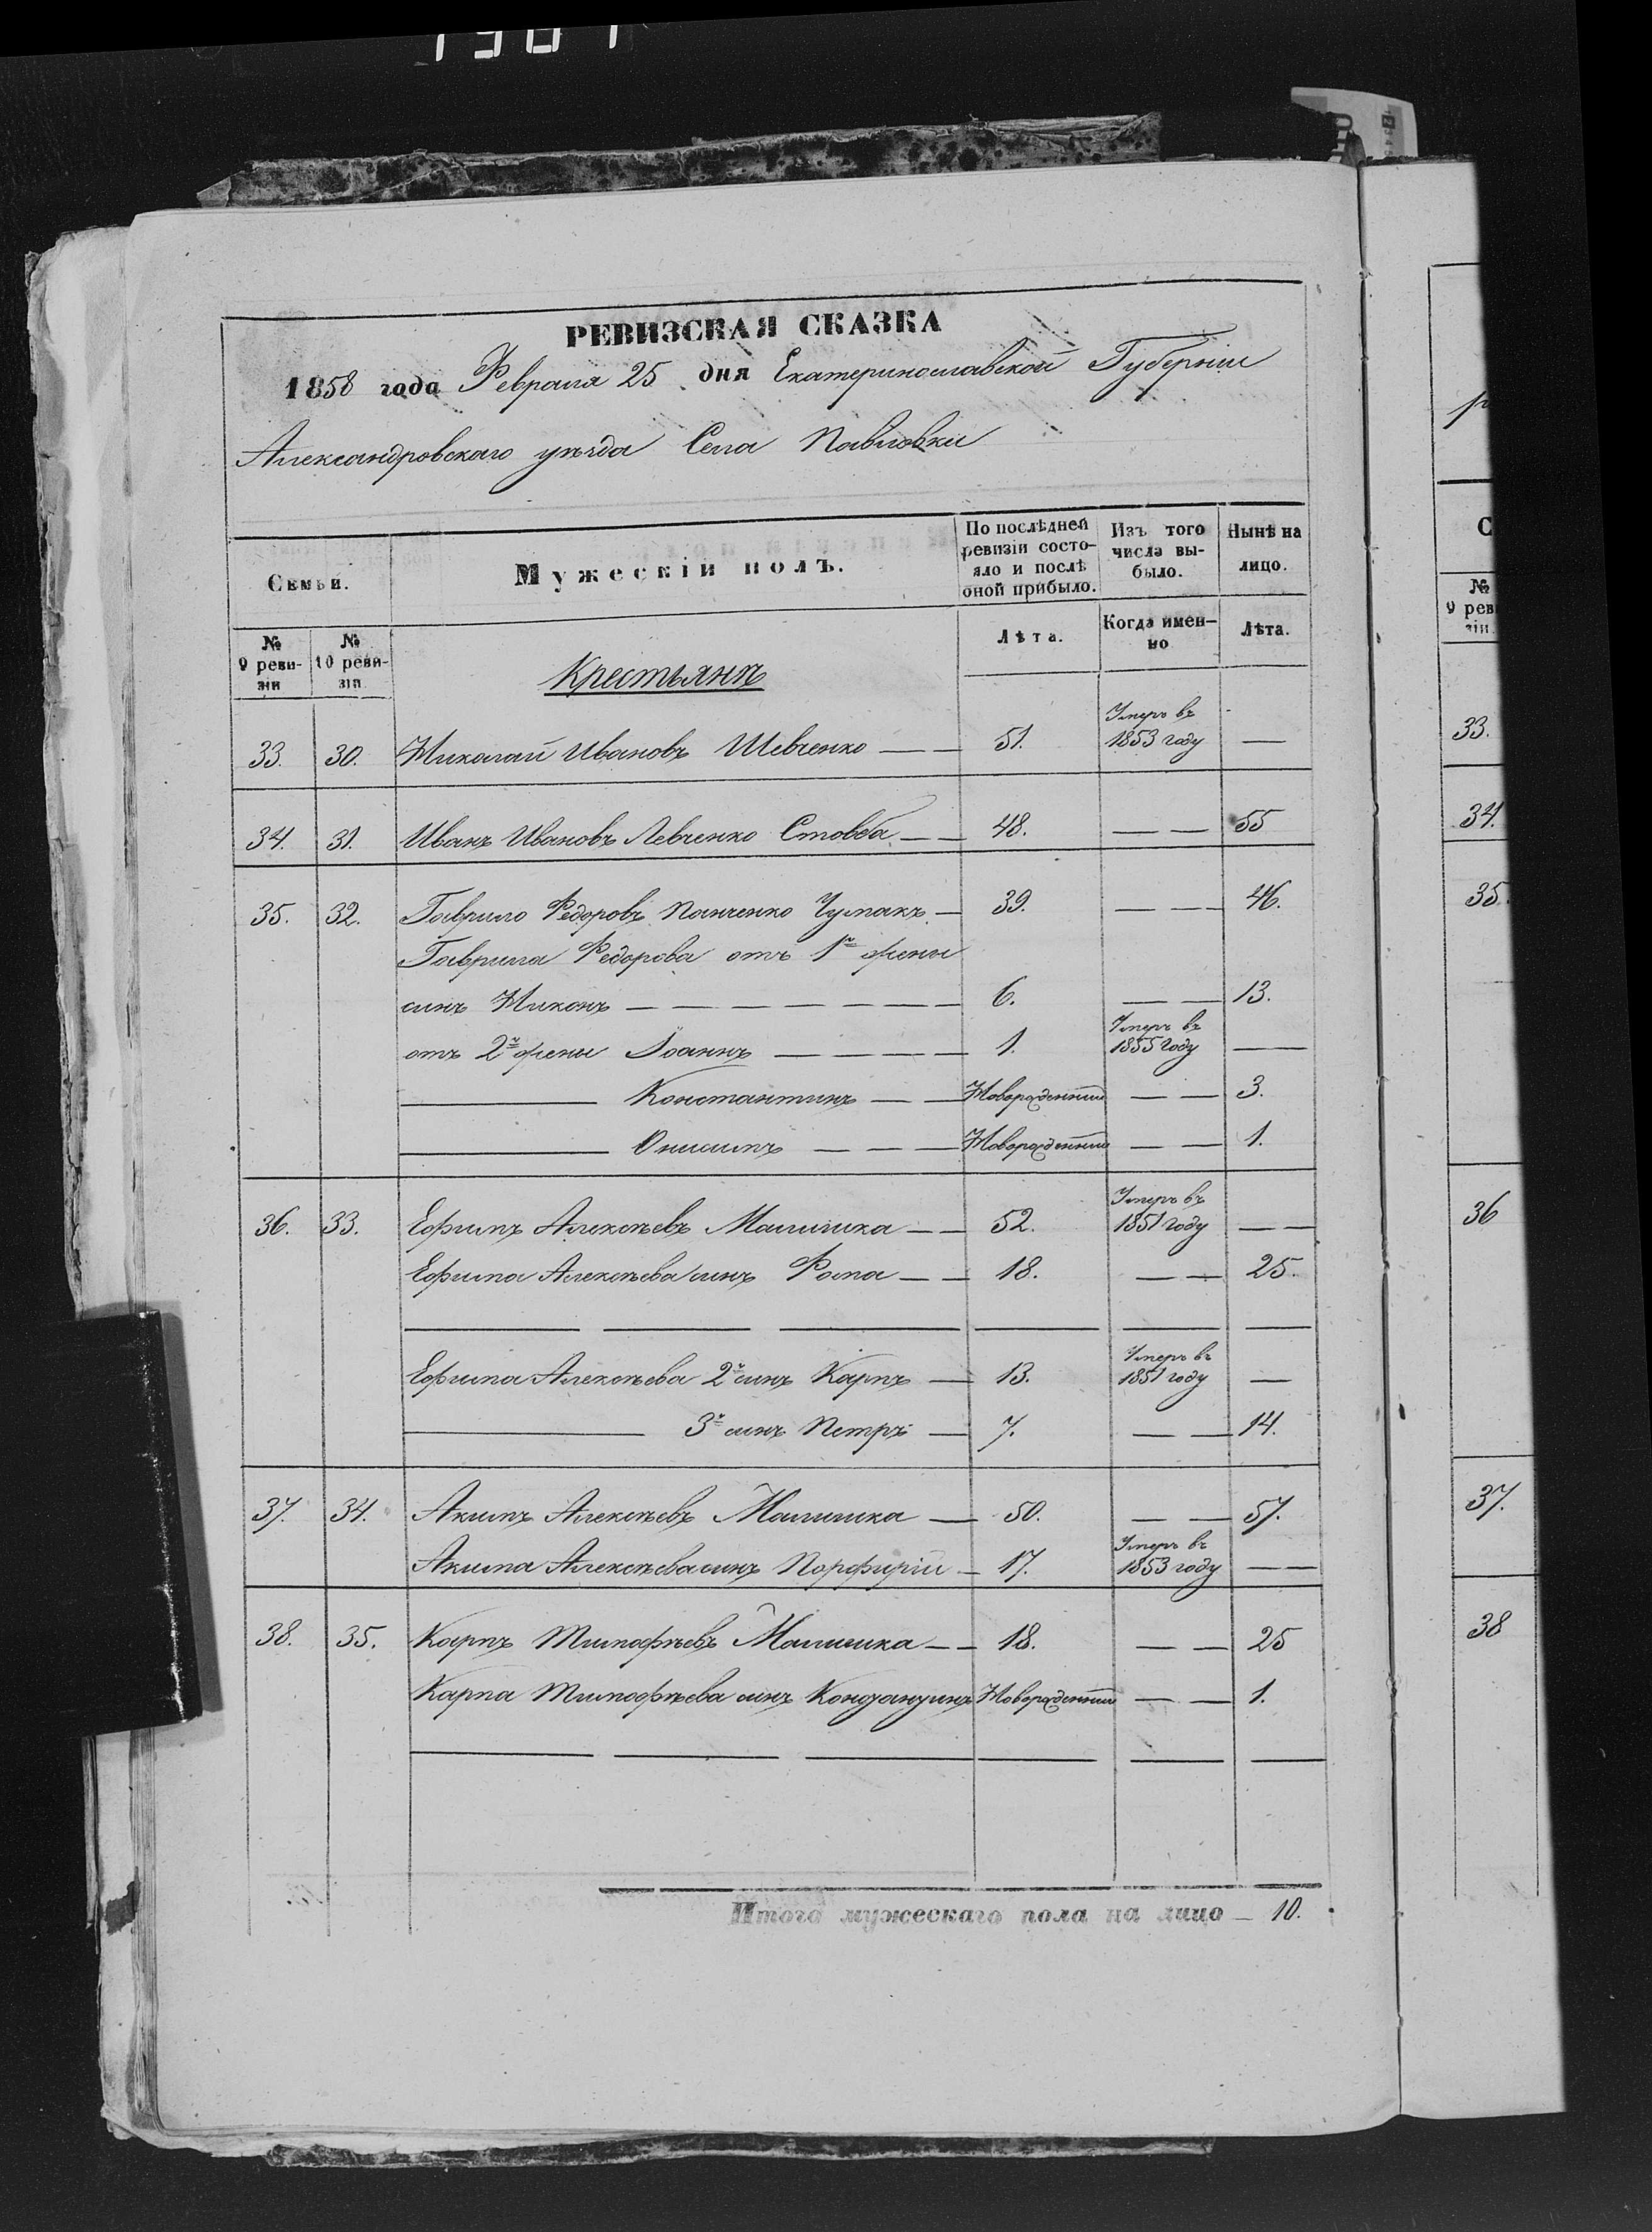 РЕВИЗСКАЯ СКАЗКА
1858 года Февраля 25 дня Екатеринославской Губерніи
Александровскаго уѣзда Села Павловки
Семьи. Мужескій полъ. По послѣдней ревизіи состояло и послѣ оной прибыло. Изъ того числа выбыло. Нынѣ на лицо.
№ 9 ревизіи № 10 ревизіи Лѣта. Когда именно Лѣта.
Крестьянѣ
33. 30. Николай Ивановъ Шевченко — — 51. Умеръ въ 1853 году —
34. 31. Иванъ Ивановъ Левченко Стовба — — 48. — — 55
35. 32. Гаврило Федоровъ Панченко Чумакъ — 39. — — 46.
Гаврила Федорова отъ 1й жены
синъ Никонъ — — — — — — — 6. — — 13.
отъ 2й жены Іоаннъ — — — — 1. Умеръ въ 1855 году —
— Константинъ — — Новорожденный — — 3.
— Онисимъ — — — Новорожденный — — 1.
36. 33. Ефимъ Алексѣевъ Малишка — — 52. Умеръ въ 1851 году — —
Ефима Алексѣева синъ Фома — — 18. — — 25.
Ефима Алексѣева 2й синъ Карпъ — 13. Умеръ въ 1851 году —
— 3й синъ Петръ — 7. — — 14.
37. 34. Акимъ Алексѣевъ Малишка — 50. — — 57.
Акима Алексѣева синъ Порфирій — 17. Умеръ въ 1853 году — —
38. 35. Карпъ Тимофѣевъ Малишка — — 18. — — 25
Карпа Тимофѣева синъ Новорожденный — — 1.
Итого мужескаго пола на лицо — 10.
р
С
№ 9 ревизіи
33.
34.
35.
36
37.
38